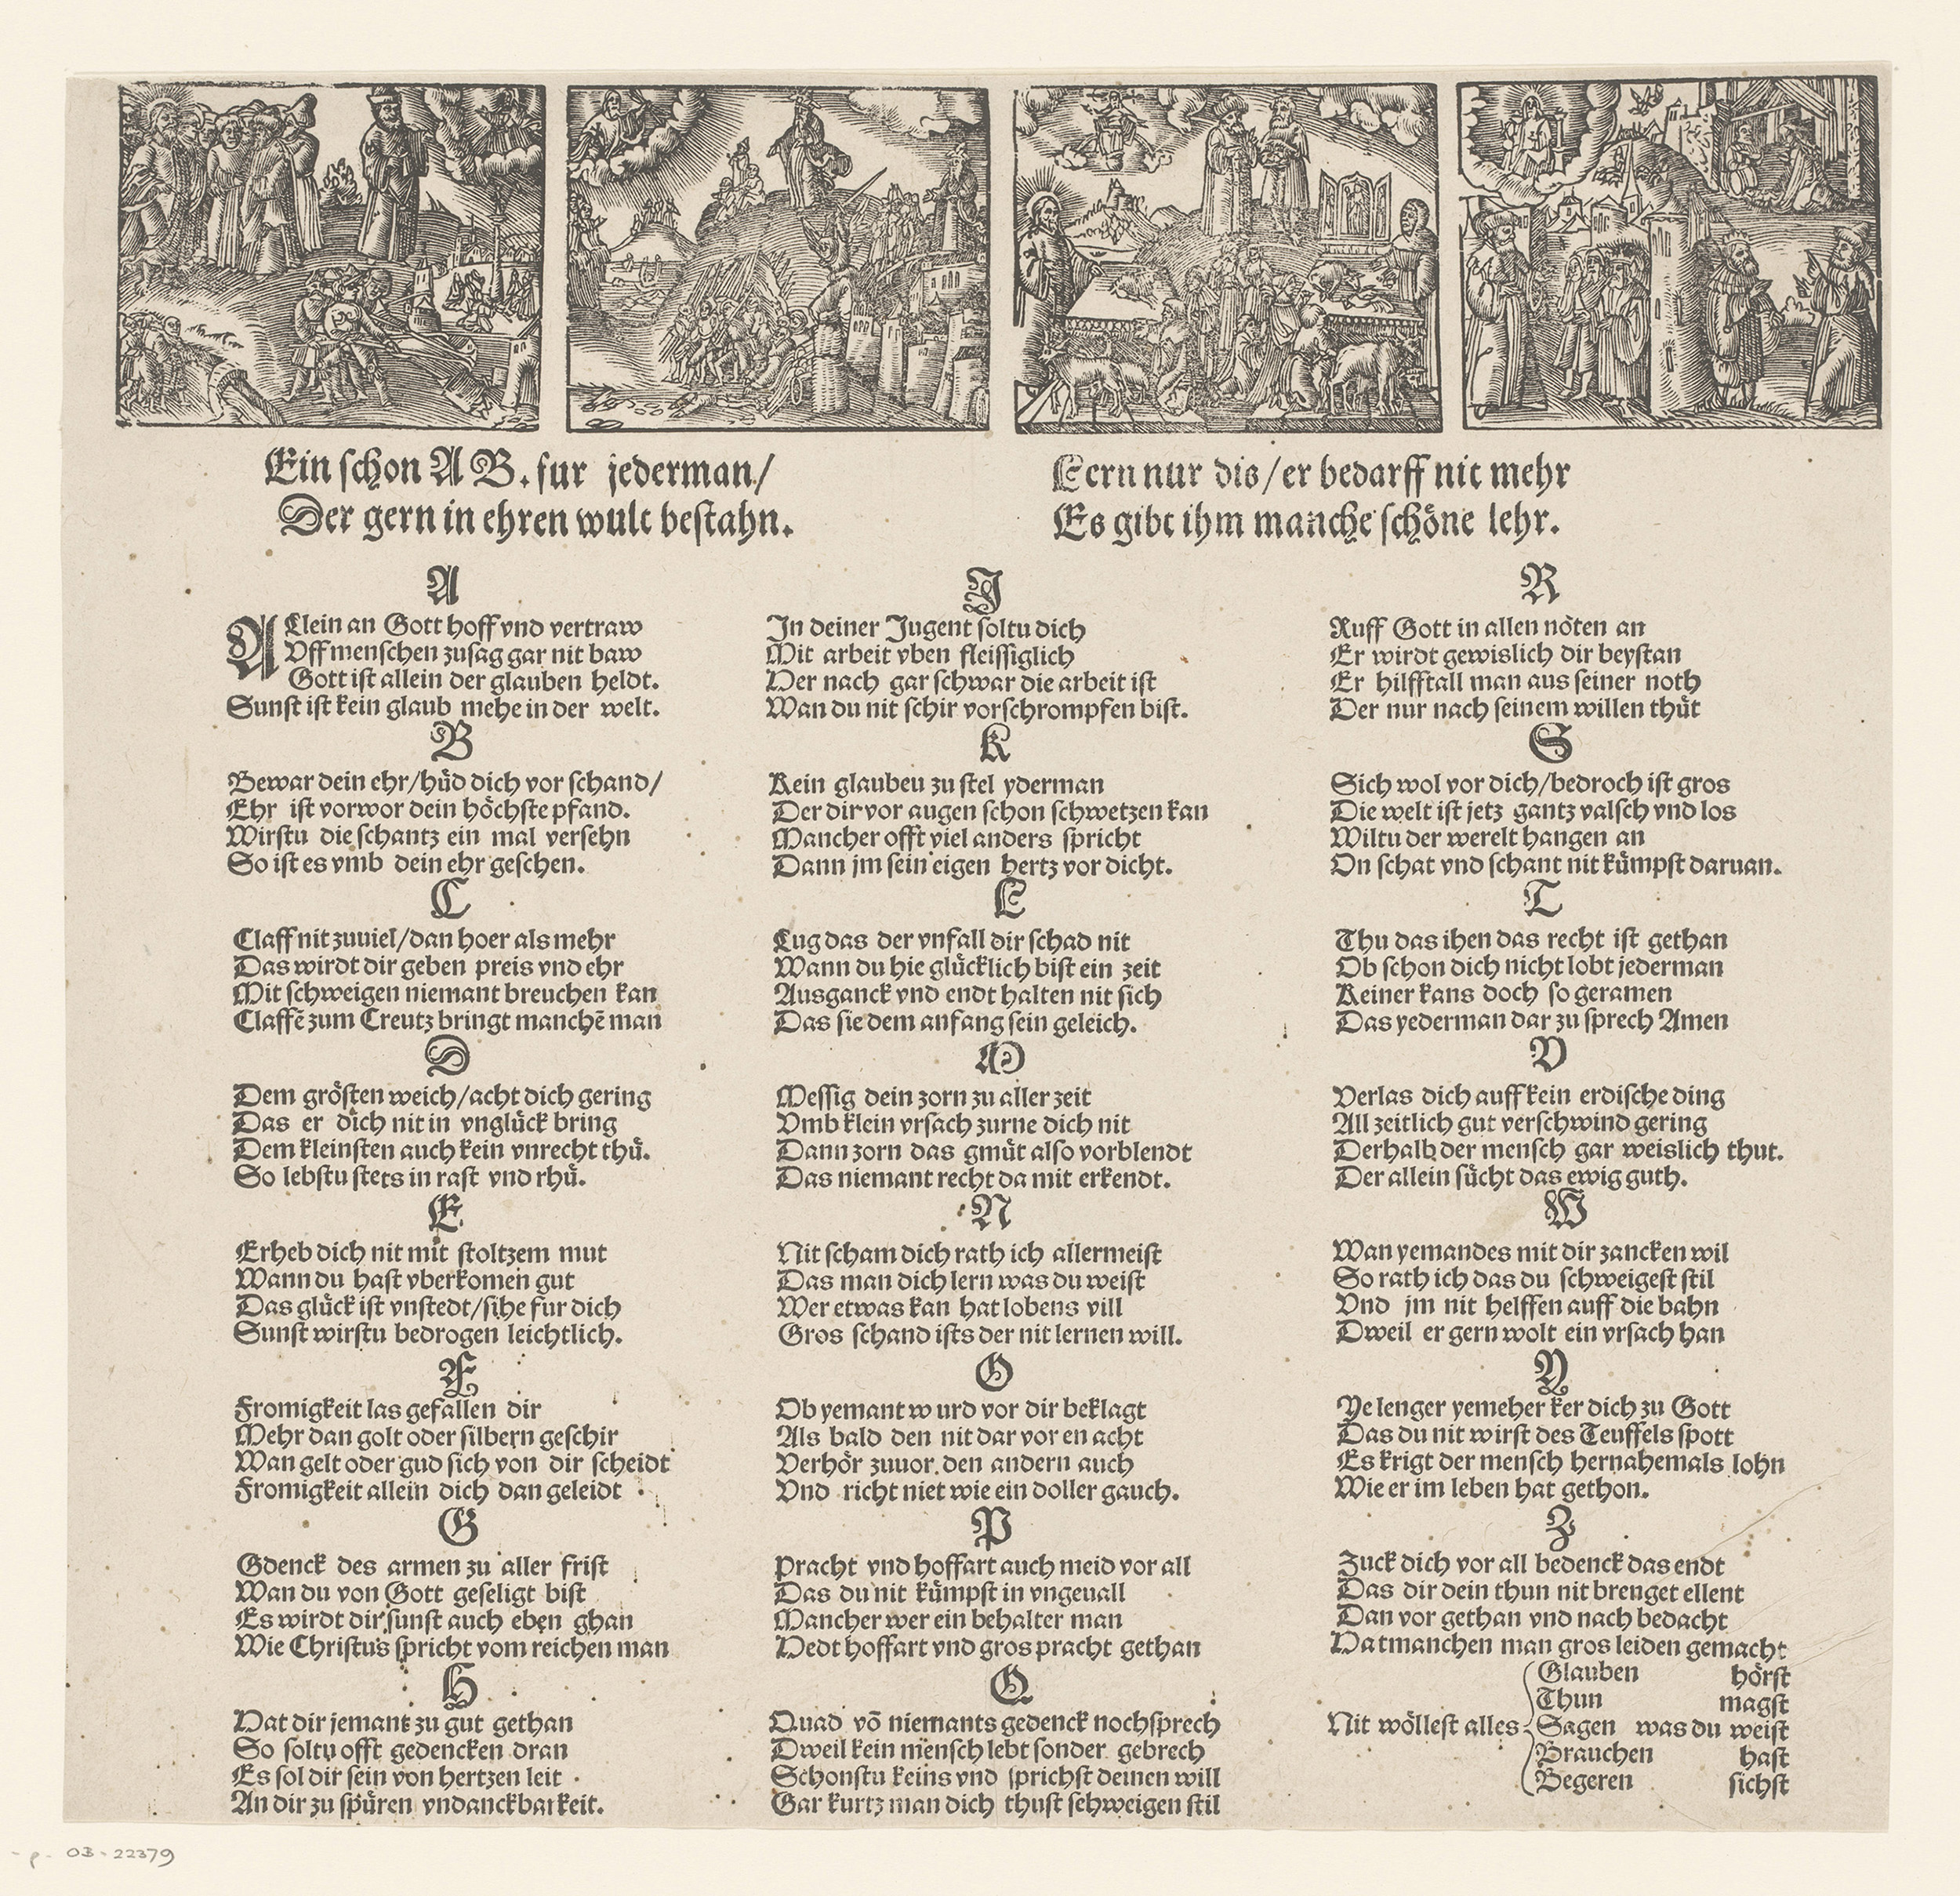 Ein schon A B. fur jederman/
Der gern in ehren wult bestahn.
Lern nur dis/er bedarff nit mehr
Es gibt ihm manche schöne lehr.
A
ALlein an Gott hoff vnd vertraw
Vff menschen zusag gar nit baw
Gott ist allein der glauben heldt.
Sunst ist kein glaub mehe in der welt.
B
Bewar dein ehr/hüd dich vor schand/
Ehr ist vorwor dein höchste pfand.
Wirstu die schantz ein mal versehn
So ist es vmb dein ehr geschen.
C
Claff nit zuuiel/dan hoer als mehr
Das wirdt dir geben preis vnd ehr
Mit schweigen niemant breuchen kan
Claffē zum Creutz bringt manchē man
D
Dem grösten weich/acht dich gering
Das er dich nit in vnglück bring
Dem kleinsten auch kein vnrecht thů.
So lebstu stets in rast vnd rhů.
E
Erheb dich nit mit stoltzem mut
Wann du hast vberkomen gut
Das glück ist vnstedt/sihe fur dich
Sunst wirstu bedrogen leichtlich.
F
Fromigkeit las gefallen dir
Mehr dan golt oder silbern geschir
Wan gelt oder gud sich von dir scheidt
Fromigkeit allein dich dan geleidt
G
Gdenck des armen zu aller frist
Wan du von Gott geseligt bist
Es wirdt dir sunst auch eben ghan
Wie Christus spricht vom reichen man
H
Hat dir jemants zu gut gethan
So soltu offt gedencken dran
Es sol dir sein von hertzen leit
An dir zu spüren vndanckbarkeit.
J
In deiner Jugent soltu dich
Mit arbeit vben fleissiglich
Her nach gar schwar die arbeit ist
Wan du nit schir vorschrompfen bist.
K
Kein glaubeu zu stel yderman
Der dir vor augen schon schwetzen kan
Mancher offt viel anders spricht
Dann jm sein eigen hertz vor dicht.
L
Lug das der vnfall dir schad nit
Wann du hie glücklich bist ein zeit
Ausganck vnd endt halten nit sich
Das sie dem anfang sein geleich.
M
Messig dein zorn zu aller zeit
Vmb klein vrsach zurne dich nit
Dann zorn das gmüt also vorblendt
Das niemant recht da mit erkendt.
N
Nit scham dich rath ich allermeist
Das man dich lern was du weist
Wer etwas kan hat lobens vill
Gros schand ists der nit lernen will.
O
Ob yemant w urd vor dir beklagt
Als bald den nit dar vor en acht
Verhör zuuor den andern auch
Vnd richt niet wie ein doller gauch.
P
Pracht vnd hoffart auch meid vor all
Das du nit kümpst in vngeuall
Mancher wer ein behalter man
Hedt hoffart vnd gros pracht gethan
Q
Quad vō niemants gedenck noch sprech
Dweil kein mensch lebt sonder gebrech
Schonstu keins vnd sprichst deinen will
Gar kurtz man dich thust schweigen stil
R
Ruff Gott in allen nöten an
Er wirdt gewislich dir beystan
Er hilfft all man aus seiner noth
Der nur nach seinem willen thüt
S
Sich wol vor dich/bedroch ist gros
Die welt ist jetz gantz valsch vnd los
Wiltu der werelt hangen an
On schat vnd schant nit kümpst daruan.
T
Thu das ihen das recht ist gethan
Ob schon dich nicht lobt jederman
Keiner kans doch so geramen
Das yederman dar zu sprech Amen
V
Verlas dich auff kein erdische ding
All zeitlich gut verschwind gering
Derhalb der mensch gar weislich thut.
Der allein sücht das ewig guth.
W
Wan yemandes mit dir zancken wil
So rath ich das du schweigest stil
Vnd jm nit helffen auff die bahn
Dweil er gern wolt ein vrsach han
Y
Ye lenger yemeher ker dich zu Gott
Das du nit wirst des Teuffels spott
Es krigt der mensch hernahemals lohn
Wie er im leben hat gethon.
Z
Zuck dich vor all bedenck das endt
Das dir dein thun nit brenget ellent
Dan vor gethan vnd nach bedacht
Hat manchen man gros leiden gemacht
Glauben hörst
Thun magst
Nit wöllest alles Sagen was du weist
Brauchen hast
Begeren sichst
- p. OB-22379